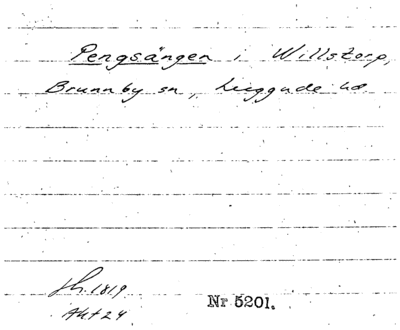 Pengsängen i Willstorp,
Brunnby sn, Luggude hd.
Sh. 1819
Akt 24
Nr 5201.